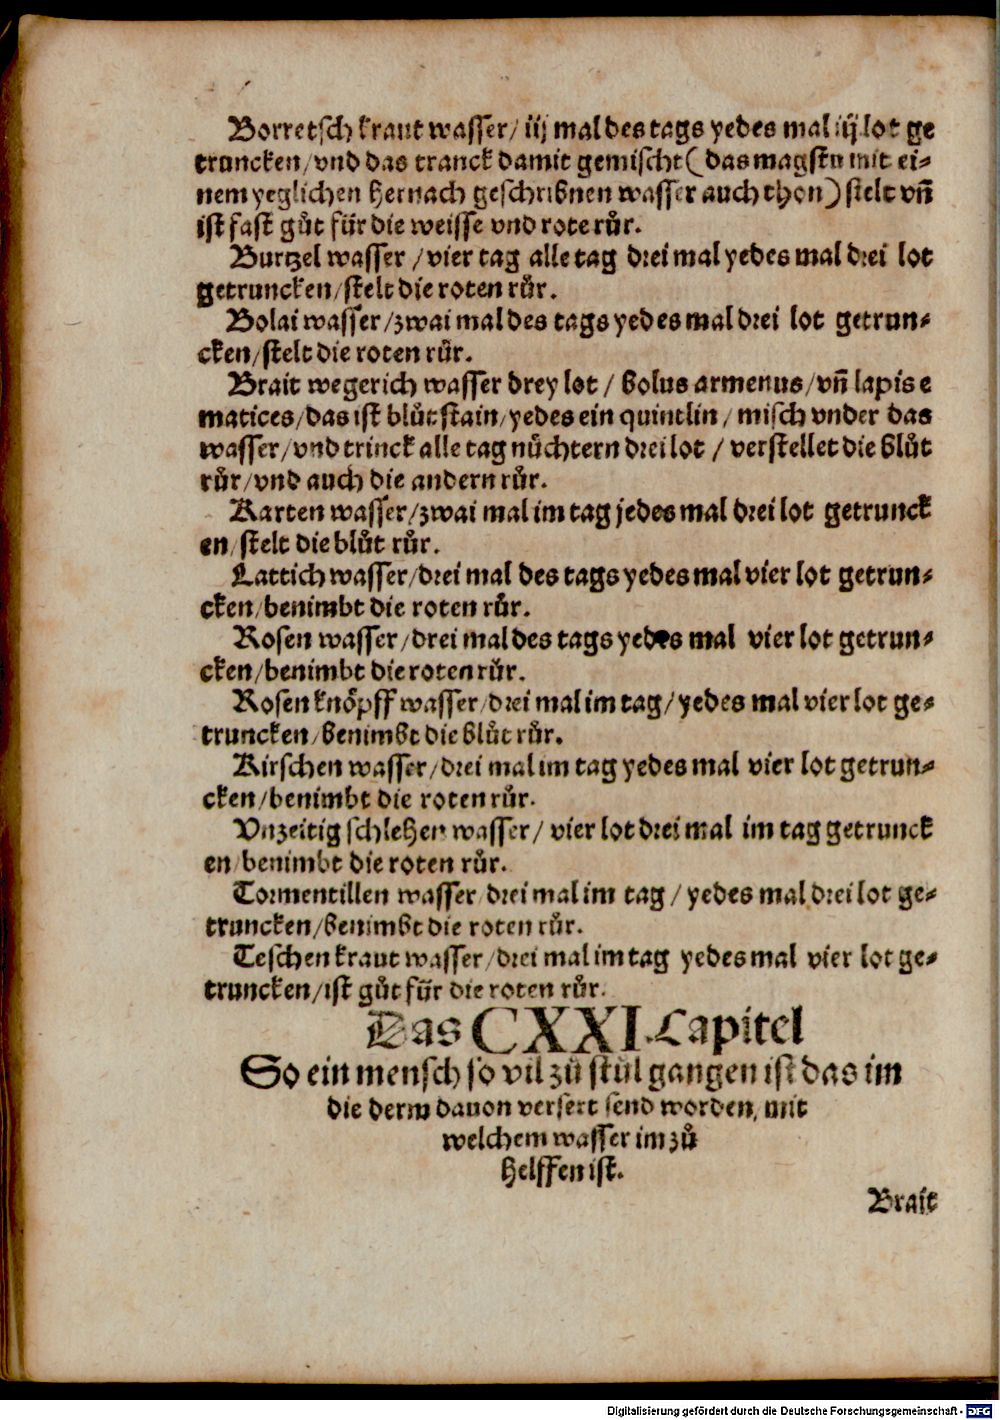 Borretsch kraut wasser/ iij mal des tags yedes mal iij lot ge
truncken/vnd das tranck damit gemischt (das magstu mit ei⸗
nem yeglichen hernach geschribnen wasser auch thon) stelt vñ
ist fast gůt für die weisse vnd rote růr.
Burtzel wasser /vier tag alle tag drei mal yedes mal drei lot
getruncken/stelt die roten růr.
Bolai wasser/zwai mal des tags yedes mal drei lot getrun⸗
cken/stelt die roten růr.
Brait wegerich wasser drey lot / bolus armenus/vñ lapis e
matices/das ist blůtstain/yedes ein quintlin/ misch vnder das
wasser/vnd trinck alle tag nůchtern drei lot / verstellet die blůt
růr/vnd auch die andern růr.
Karten wasser/zwai mal im tag jedes mal drei lot getrunck
en/stelt die blůt růr.
Lattich wasser/drei mal des tags yedes mal vier lot getrun⸗
cken/benimbt die roten růr.
Rosen wasser/drei mal des tags yedes mal vier lot getrun⸗
cken/benimbt die roten růr.
Rosen knöpff wasser/drei mal im tag/yedes mal vier lot ge⸗
truncken/benimbt die blůt růr.
Kirschen wasser/drei mal im tag yedes mal vier lot getrun⸗
cken/benimbt die roten růr.
Vnzeitig schlehen wasser/ vier lot drei mal im tag getrunck
en/benimbt die roten růr.
Tormentillen wasser/drei mal im tag / yedes mal drei lot ge⸗
truncken/benimbt die roten růr.
Teschen kraut wasser/drei mal im tag yedes mal vier lot ge⸗
truncken/ist gůt für die roten růr.
Das CXXI. Capitel
So ein mensch so vil zů stůl gangen ist das im
die derm dauon versert send worden, mit
welchem wasser im zů
helffen ist.
Brait
Digitalisierung gefördert durch die Deutsche Forschungsgemeinschaft - DFG